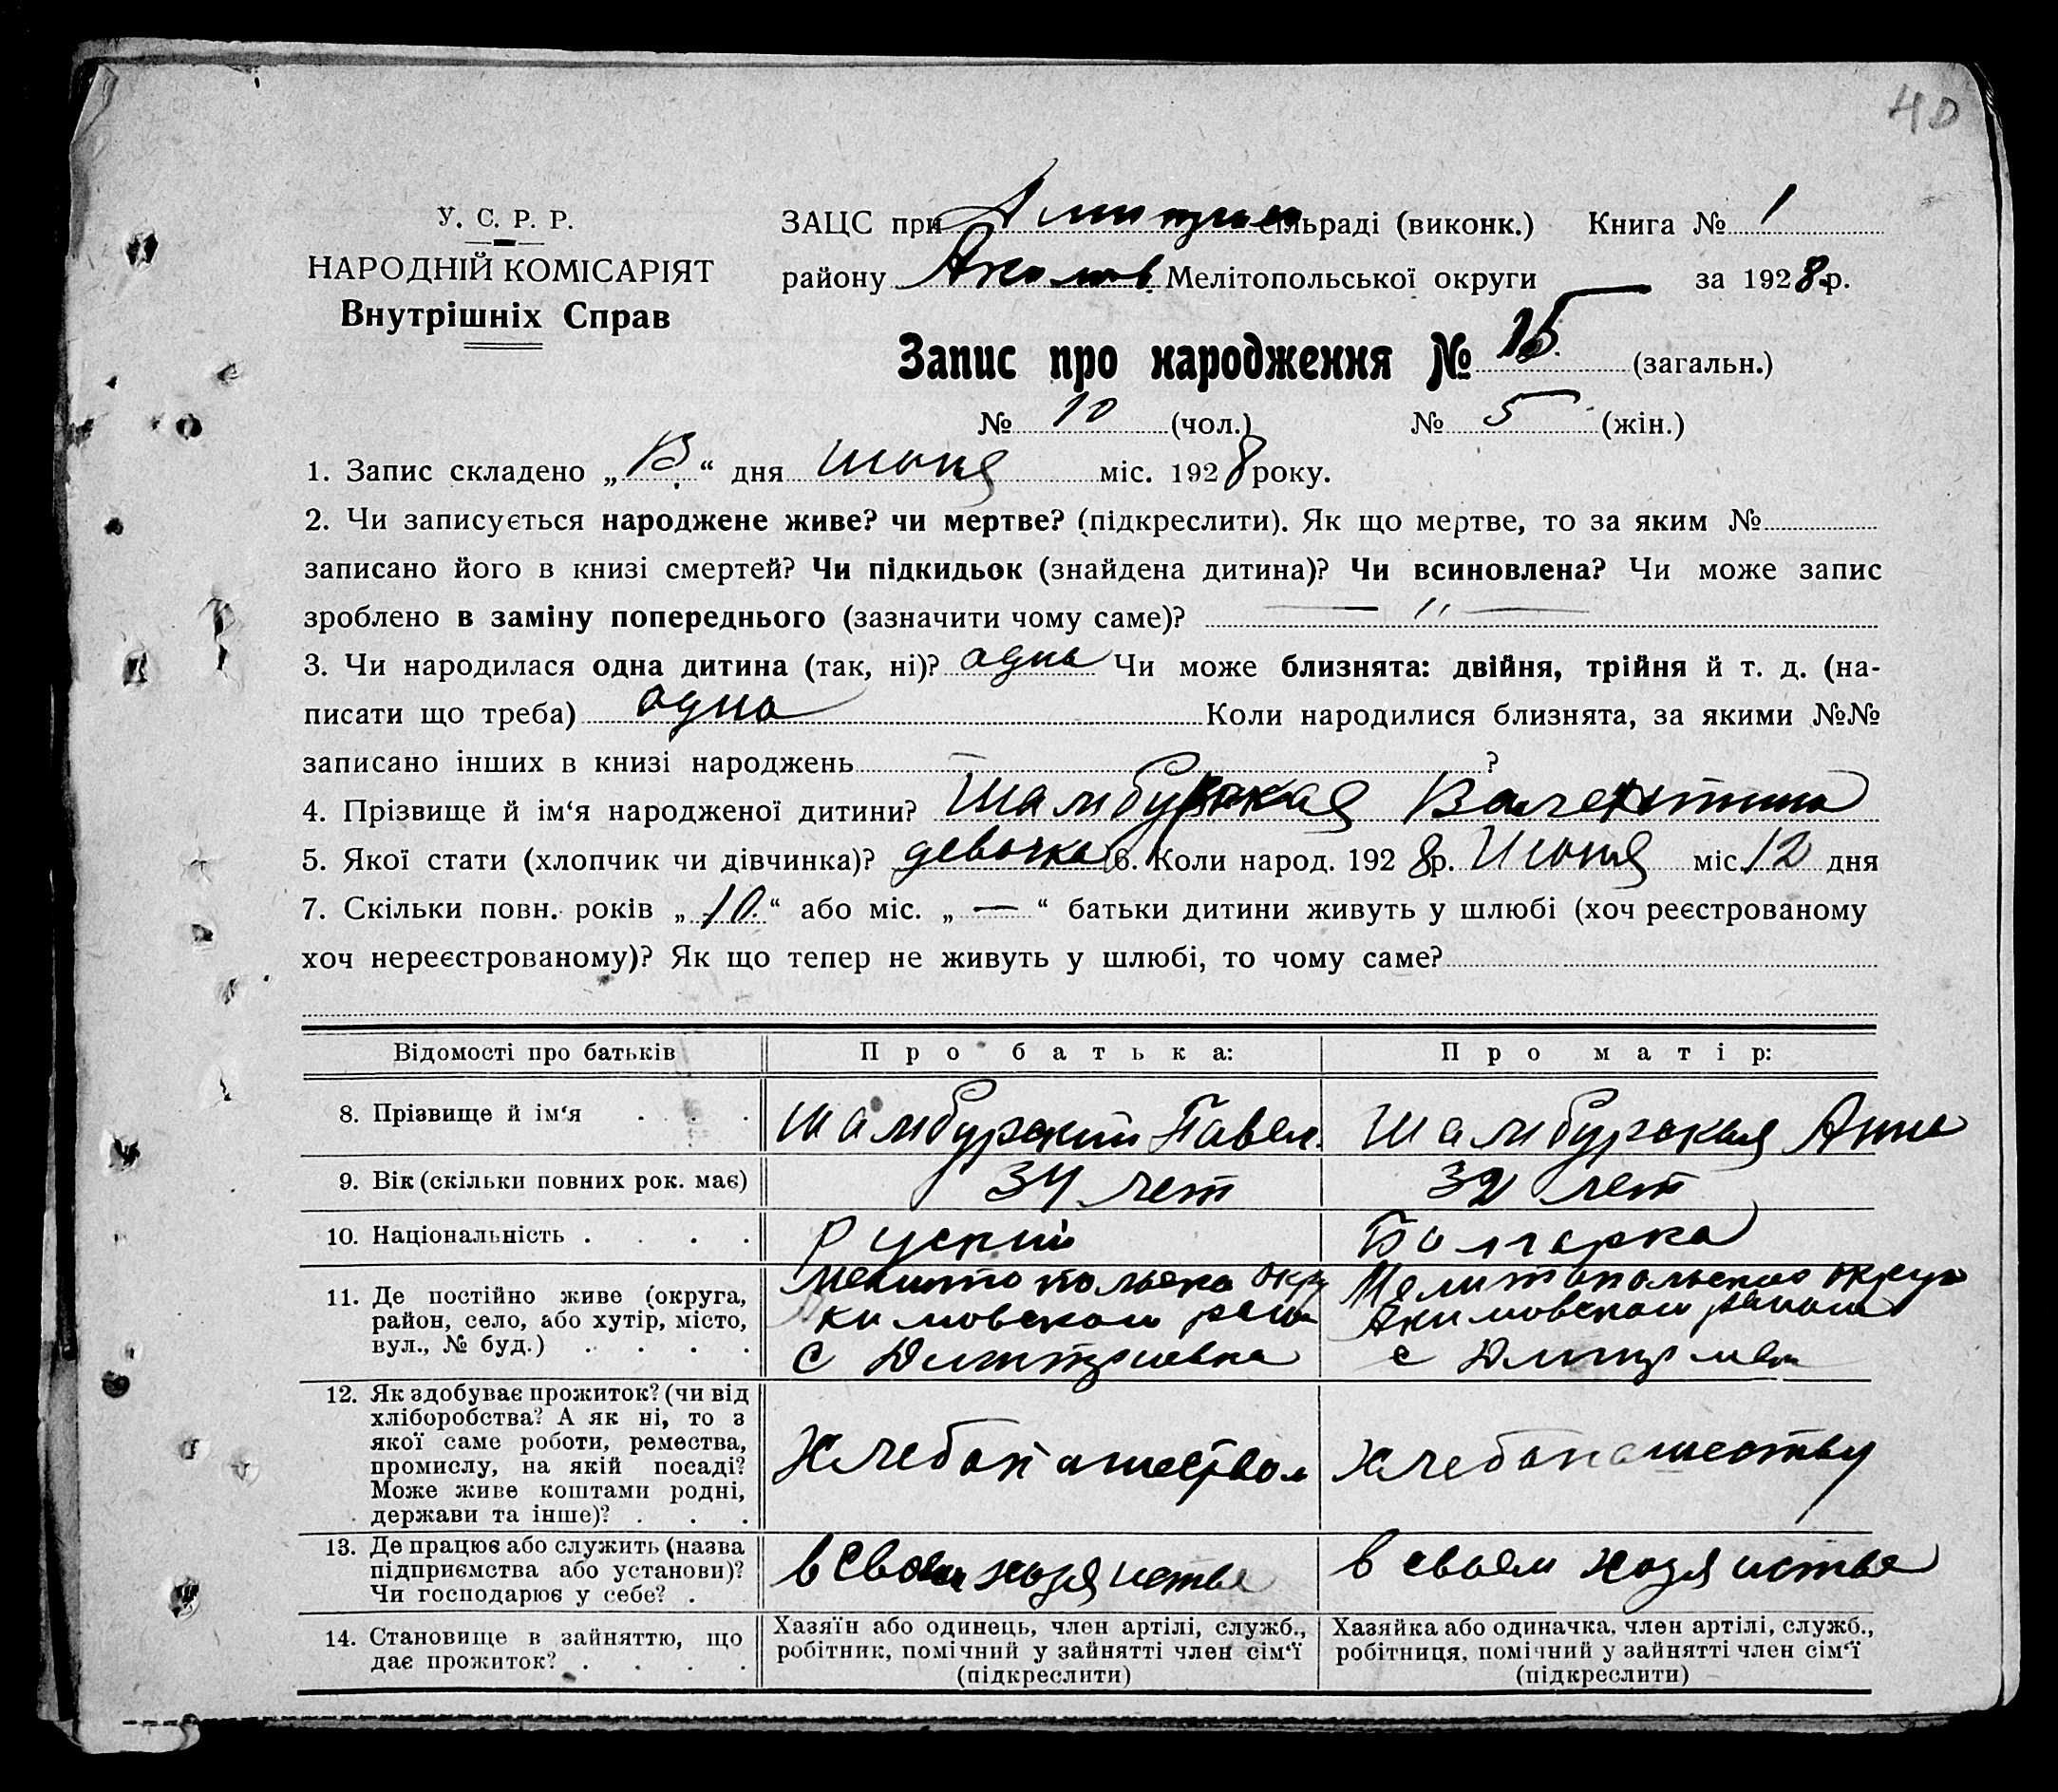 40
У. С. Р. Р.
НАРОДНІЙ КОМІСАРІЯТ
Внутрішніх Справ
ЗАЦС при Дмитрі сільраді (виконк.) Книга № 1
району Аким Мелітопольської округи за 1928 р.
Запис про народження № 15 (загальн.)
№ 10 (чол.) № 5 (жін.)
1. Запис складено „13“ дня июня міс. 1928 року.
2. Чи записується народжене живе? чи мертве? (підкреслити). Як що мертве, то за яким №
записано його в книзі смертей? Чи підкидьок (знайдена дитина)? Чи всиновлена? Чи може запис
зроблено в заміну попереднього (зазначити чому саме)? — " —
3. Чи народилася одна дитина (так, ні)? одна Чи може близнята: двійня, трійня й т. д. (на-
писати що треба) одна Коли народилися близнята, за якими №№
записано інших в книзі народжень ?
4. Прізвище й ім‘я народженої дитини? Шамбурская Валентина
5. Якої стати (хлопчик чи дівчинка)? девочка 6. Коли народ. 1928 р. Июня міс. 12 дня
7. Скільки повн. років „10.“ або міс. „—“ батьки дитини живуть у шлюбі (хоч реєстрованому
хоч нереєстрованому)? Як що тепер не живуть у шлюбі, то чому саме?
Відомості про батьків Про батька: Про матір:
8. Прізвище й ім‘я Шамбурский Павел Шамбурская Анна
9. Вік (скільки повних рок. має) 34 лет 32 лет
10. Національність Руский Болгарка
11. Де постійно живе (округа, район, село, або хутір, місто, вул., № буд.)
Мелитопольска окру
Акимовском район
с Дмитриевка
Мелитопольскас округ
Акимовском районе
с Дмитриев
12. Як здобуває прожиток? (чи від хліборобства? А як ні, то з якої саме роботи, ремества, промислу, на якій посаді? Може живе коштами родні, держави та інше)?
Хлебопашеством
хлебопашеству
13. Де працює або служить (назва підприємства або установи)? Чи господарює у себе?
в своем хозяистве
в своем хозяистве
14. Становище в зайняттю, що дає прожиток?
Хазяїн або одинець, член артілі, служб.,
робітник, помічний у зайнятті член сім‘ї
(підкреслити)
Хазяйка або одиначка, член артілі, служб.,
робітниця, помічний у зайнятті член сім‘ї
(підкреслити)